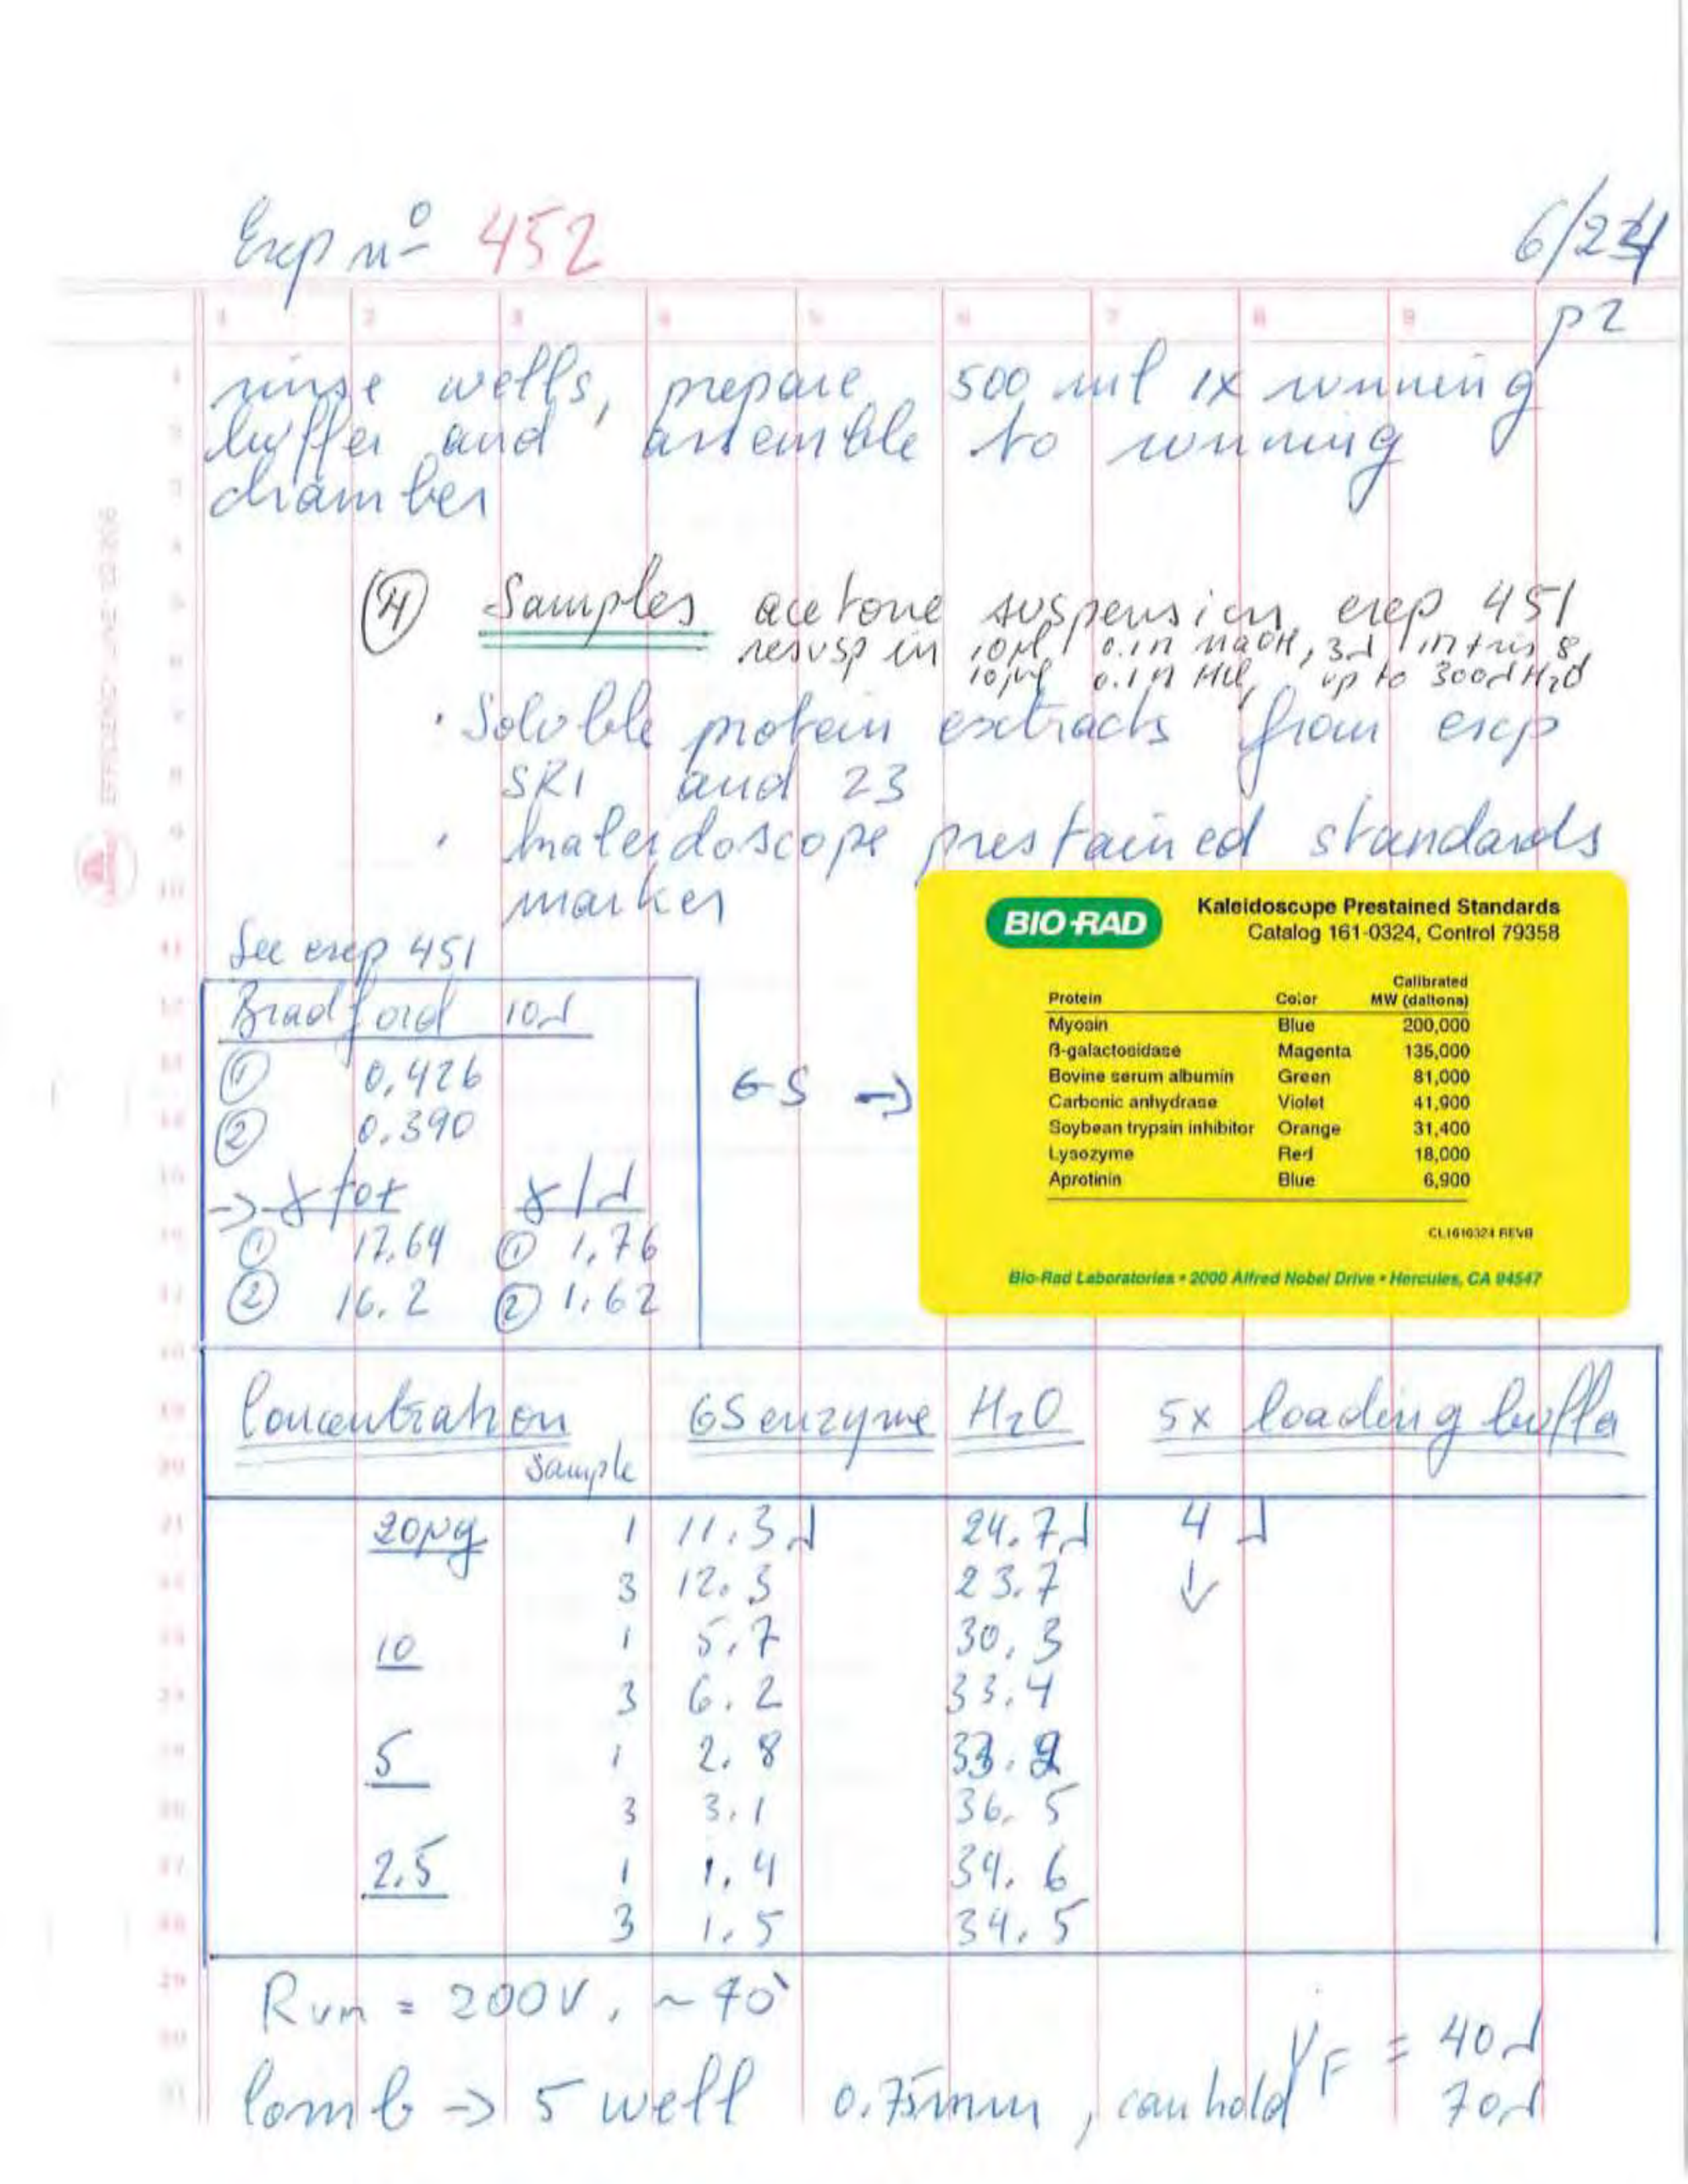 Exp nº 452
6/24
p2
1 2 3 4 5 6 7 8 9
rinse wells, prepare 500 ml 1x running
buffer and assemble to running
chamber
④ Samples acetone suspension exp 451
resusp in 10µl 0.1N NaOH, 3λ 1M tris 8,
10µl 0.1N HCl, up to 300λ H2O
· Soluble protein extracts from exp
SR1 and 23
· kaleidoscope prestained standards
marker
See exp 451
Bradford 10λ
① 0,426
② 0.390
→ γ tot γ/λ
① 17.64 ① 1,76
② 16.2 ② 1,62
GS →
BIO-RAD
Kaleidoscope Prestained Standards
Catalog 161-0324, Control 79358
Protein Color Calibrated MW (daltons)
Myosin Blue 200,000
β-galactosidase Magenta 135,000
Bovine serum albumin Green 81,000
Carbonic anhydrase Violet 41,900
Soybean trypsin inhibitor Orange 31,400
Lysozyme Red 18,000
Aprotinin Blue 6,900
CL1610324 REVB
Bio-Rad Laboratories • 2000 Alfred Nobel Drive • Hercules, CA 94547
Concentration GS enzyme H2O 5x loading buffer
Sample
20µg 1 11.3λ 24.7λ 4 λ
3 12.3 23.7 ↓
10 1 5.7 30.3
3 6.2 33.4
5 1 2.8 33.2
3 3.1 36.5
2.5 1 1.4 34.6
3 1.5 34.5
Run = 200V, ~40'
VF = 40λ
Comb → 5 well 0.75mm, can hold 70λ